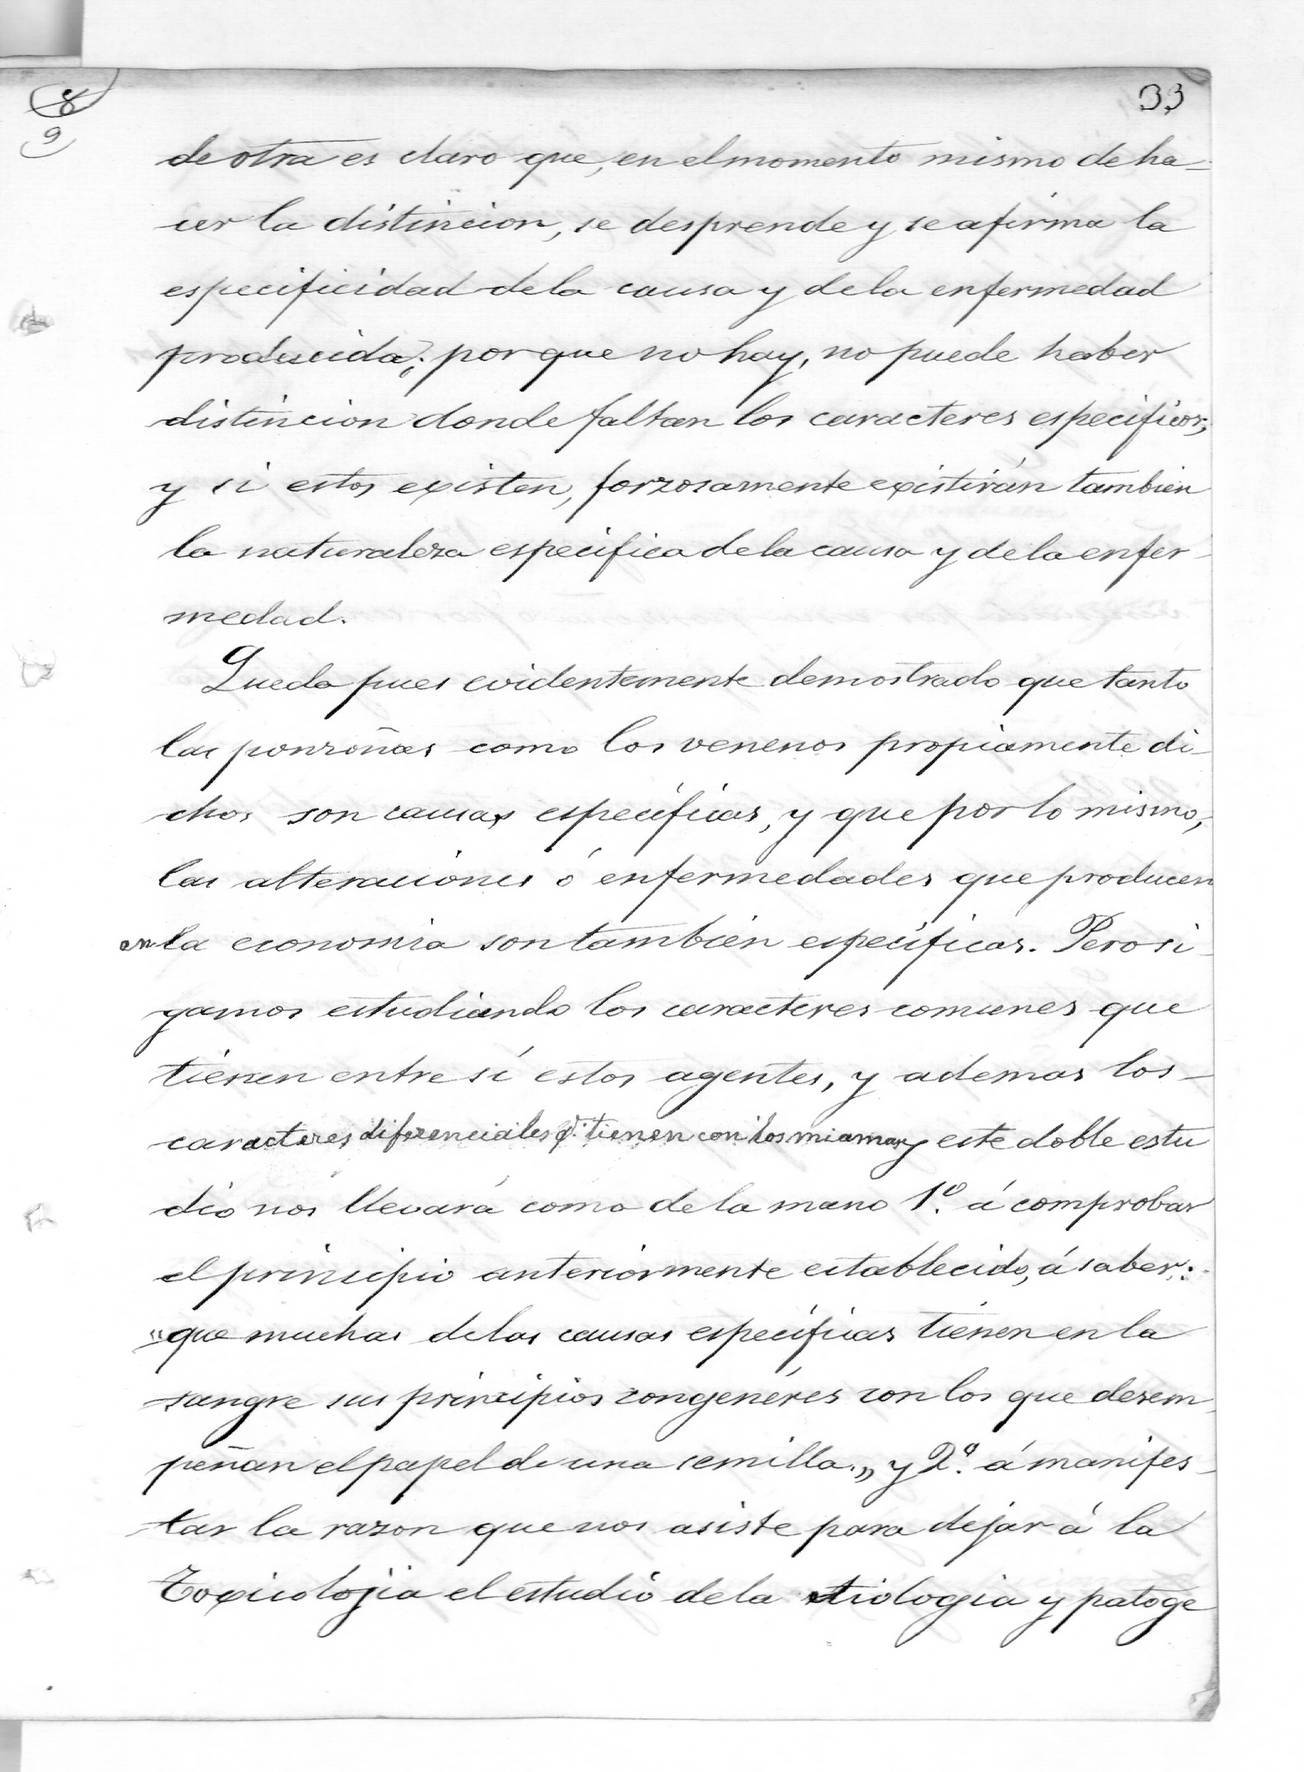 33
8
9
de otra es claro que, en el momento mismo de ha-
cer la distincion, se desprende y se afirma la
especificidad de la causa y de la enfermedad
producida; porque no hay, no puede haber
distincion donde faltan los caracteres especificos;
y si estos existen, forzosamente existirán tambien
la naturaleza especifica de la causa y de la enfer-
medad.
Queda pues evidentemente demostrado que tanto
las ponzoñas como los venenos propiamente di-
chos son causas especificas, y que por lo mismo,
las alteraciones ó enfermedades que producen
en la economia son tambien especificas. Pero si-
gamos estudiando los caracteres comunes que
tienen entre sí estos agentes, y ademas los
caracteres diferenciales q.e tienen con los miasmas y este doble estu
dio nos llevará como de la mano 1.º á comprobar
el principio anteriormente establecido, á saber:
"que muchas de las causas especificas tienen en la
sangre sus principios congenéres con los que desem-
peñan el papel de una semilla.„ y 2.º á manifes-
tar la razon que nos asiste para dejar á la
Toxicolojia el estudio de la etiologia y patoge